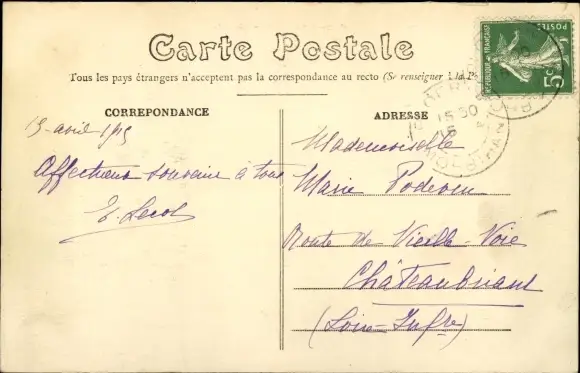 Carte Postale
Tous les pays étrangers n'acceptent pas la correspondance au recto (Se renseigner à la P
CORREPONDANCE
ADRESSE
RÉPUBLIQUE FRANÇAISE
POSTES
5c
15 30
15
MORBIHAN
15 avril 1915
Affectueux souvenir à tous
Lecol
Mademoiselle
Marie
Route de Vieille-Voie
Châteaubriant
(Loire-Infre)